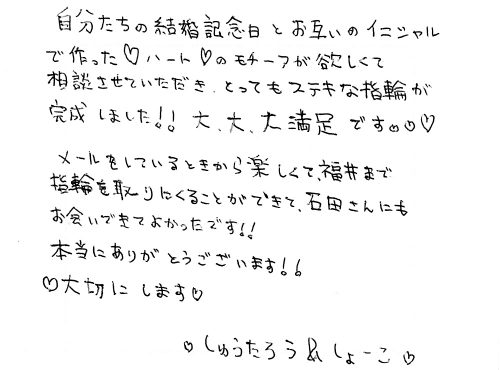 自分たちの結婚記念日とお互いのイニシャル
で作った♡ハート♡のモチーフが欲しくて
相談させていただき、とってもステキな指輪が
完成しました!! 大、大、大満足です。。♡
メールをしているときから楽しくて、福井まで
指輪を取りにくることができて、石田さんにも
お会いできてよかったです!!
本当にありがとうございます!!
♡大切にします♡
♡しゅうたろう&しょーこ♡